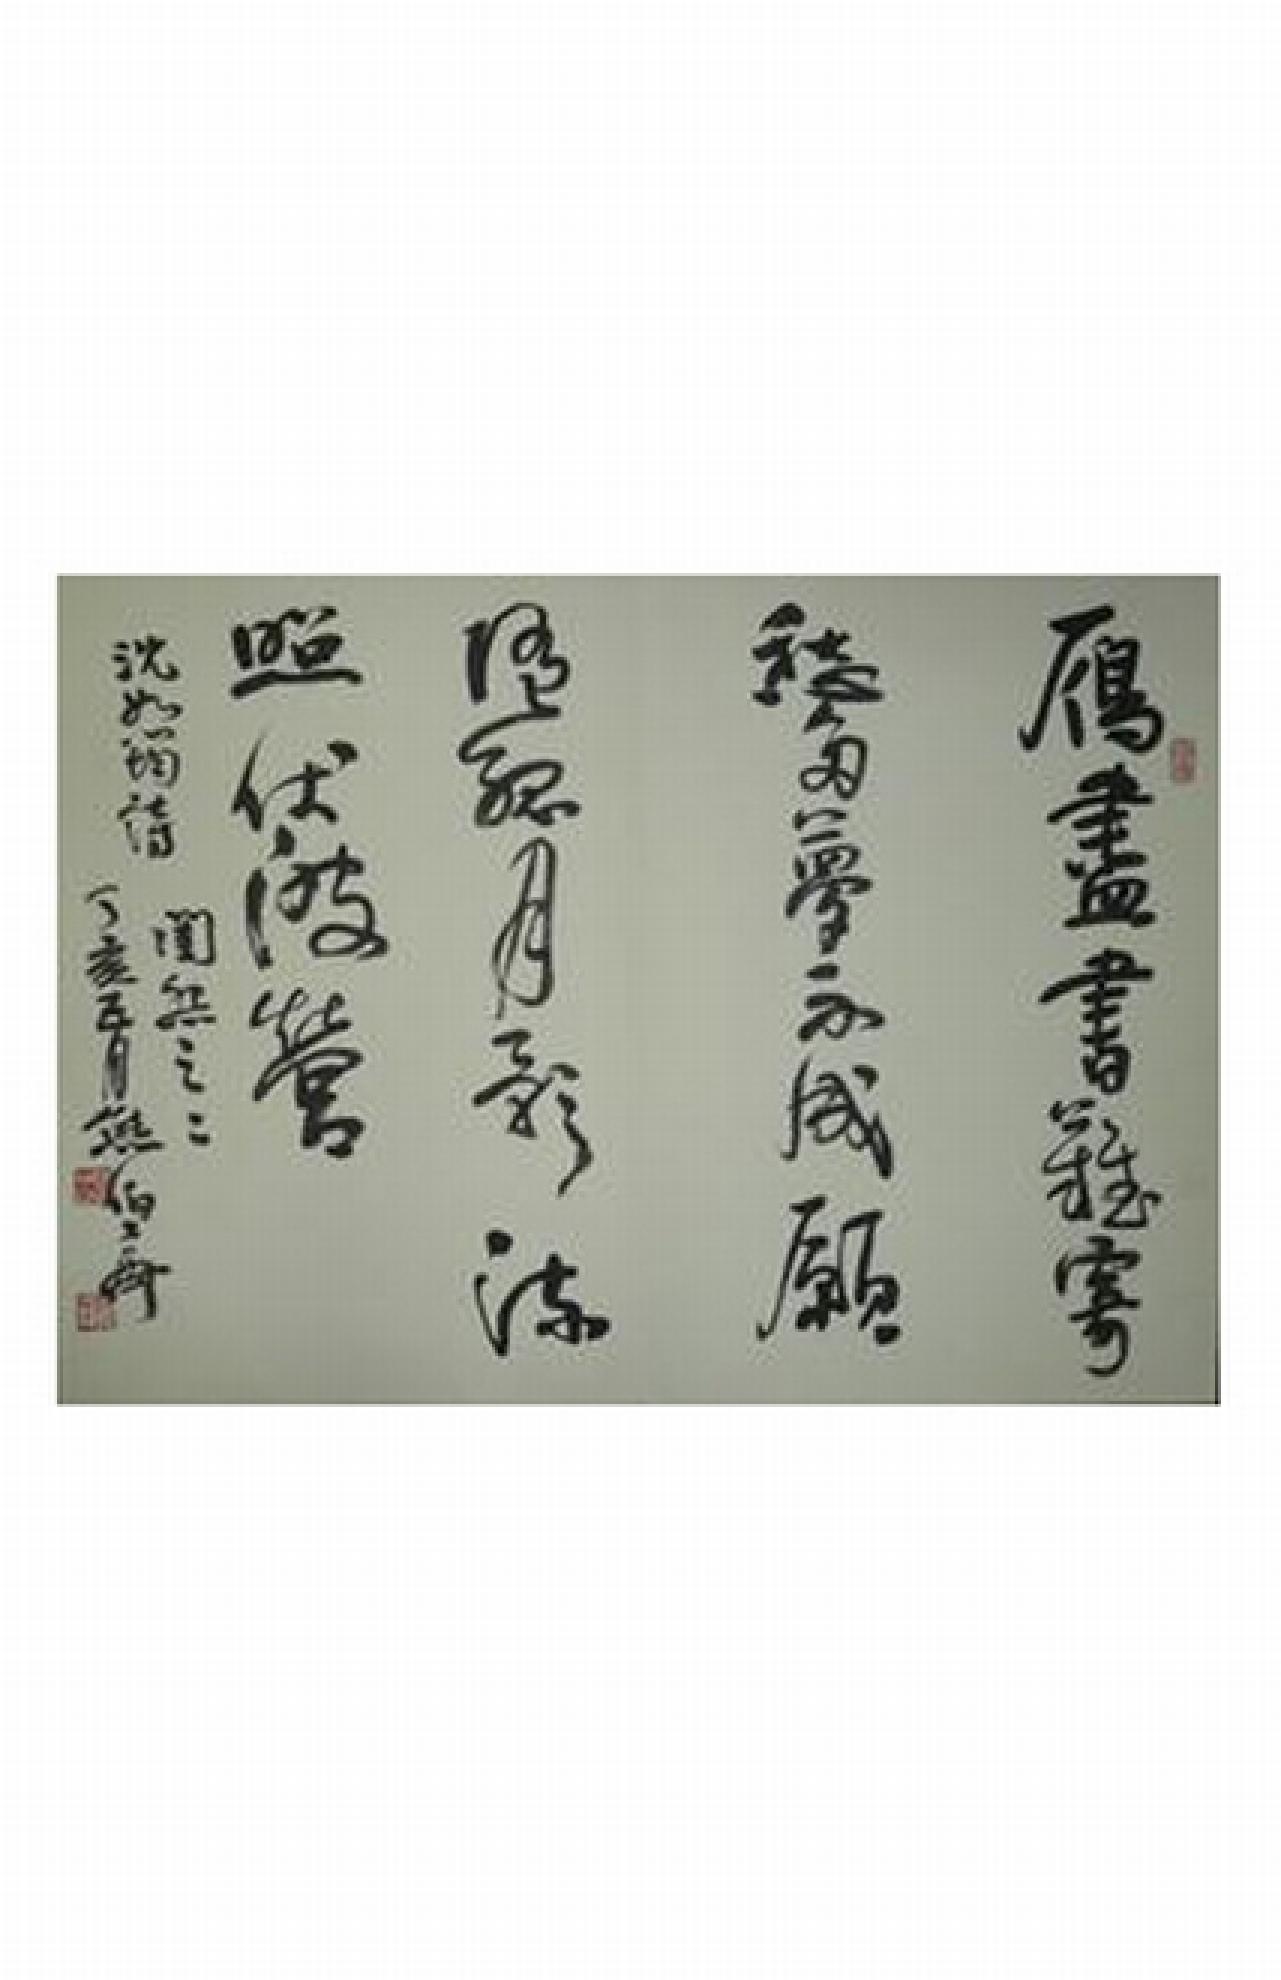 雁盡書難寄
愁多夢不成願
隨孤月影流
照伏波營
沈如筠詩
閨怨之二
丁亥五月燕